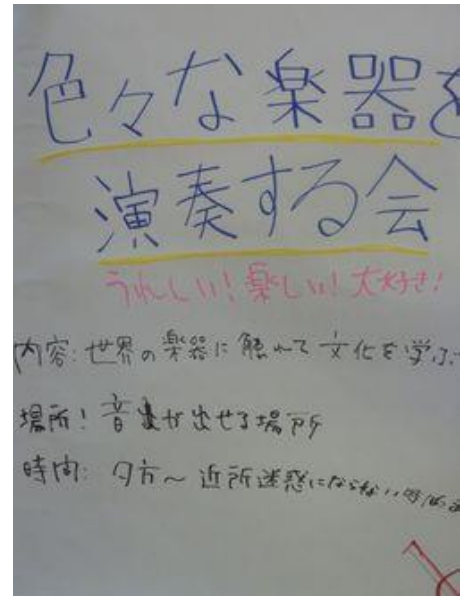 色々な楽器を
演奏する会
うれしい!楽しい!大好き!
内容:世界の楽器に触れて文化を学ぶ
場所!音が出せる場所
時間:夕方~近所迷惑にならない時